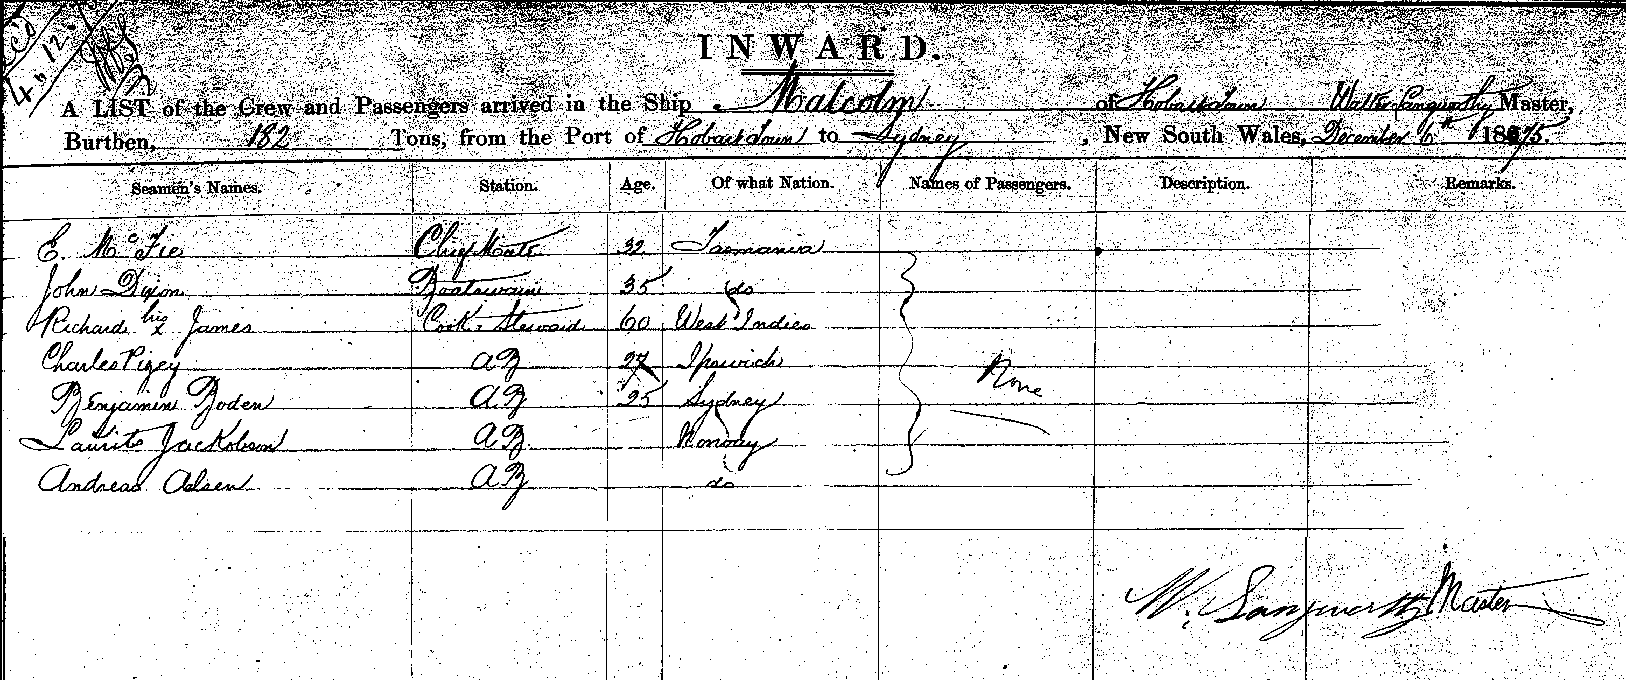 4. 12.
INWARD.
A LIST of the Crew and Passengers arrived in the Ship Malcolm of Hobart Town Walter Langworthy Master,
Burthen, 182 Tons, from the Port of Hobart Town to Sydney, New South Wales, December 6th 1875.
Seamen's Names. Station. Age. Of what Nation. Names of Passengers. Description. Remarks.
E. McFie Chief Mate 32 Tasmania
John Dixon Boatswain 35 do
Richard his x James Cook & Steward 60 West Indies
Charles Pizey AB 27 Ipswich None
Benjamin Boden AB 25 Sydney
Laurits Jackobson AB Norway
Andreas Olsen AB do
W. Langworthy Master